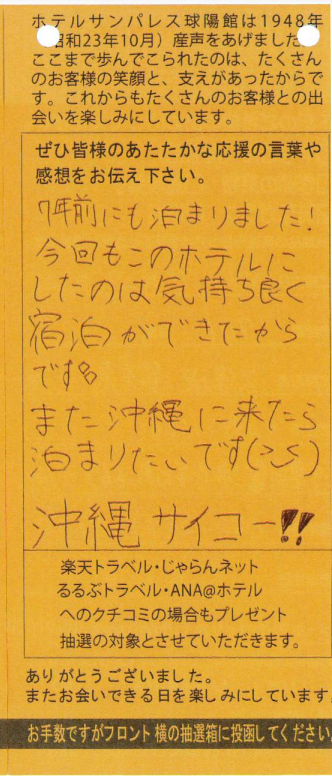 ホテルサンパレス球陽館は1948年
昭和23年10月）産声をあげました
ここまで歩んでこられたのは、たくさん
のお客様の笑顔と、支えがあったからで
す。これからもたくさんのお客様との出
会いを楽しみにしています。
ぜひ皆様のあたたかな応援の言葉や
感想をお伝え下さい。
7年前にも泊まりました!
今回もこのホテルに
したのは気持ち良く
宿泊ができたから
です
また沖縄に来たら
泊まりたいです
沖縄サイコー!!
楽天トラベル・じゃらんネット
るるぶトラベル・ANA@ホテル
へのクチコミの場合もプレゼント
抽選の対象とさせていただきます。
ありがとうございました。
またお会いできる日を楽しみにしています
お手数ですがフロント横の抽選箱に投函してください